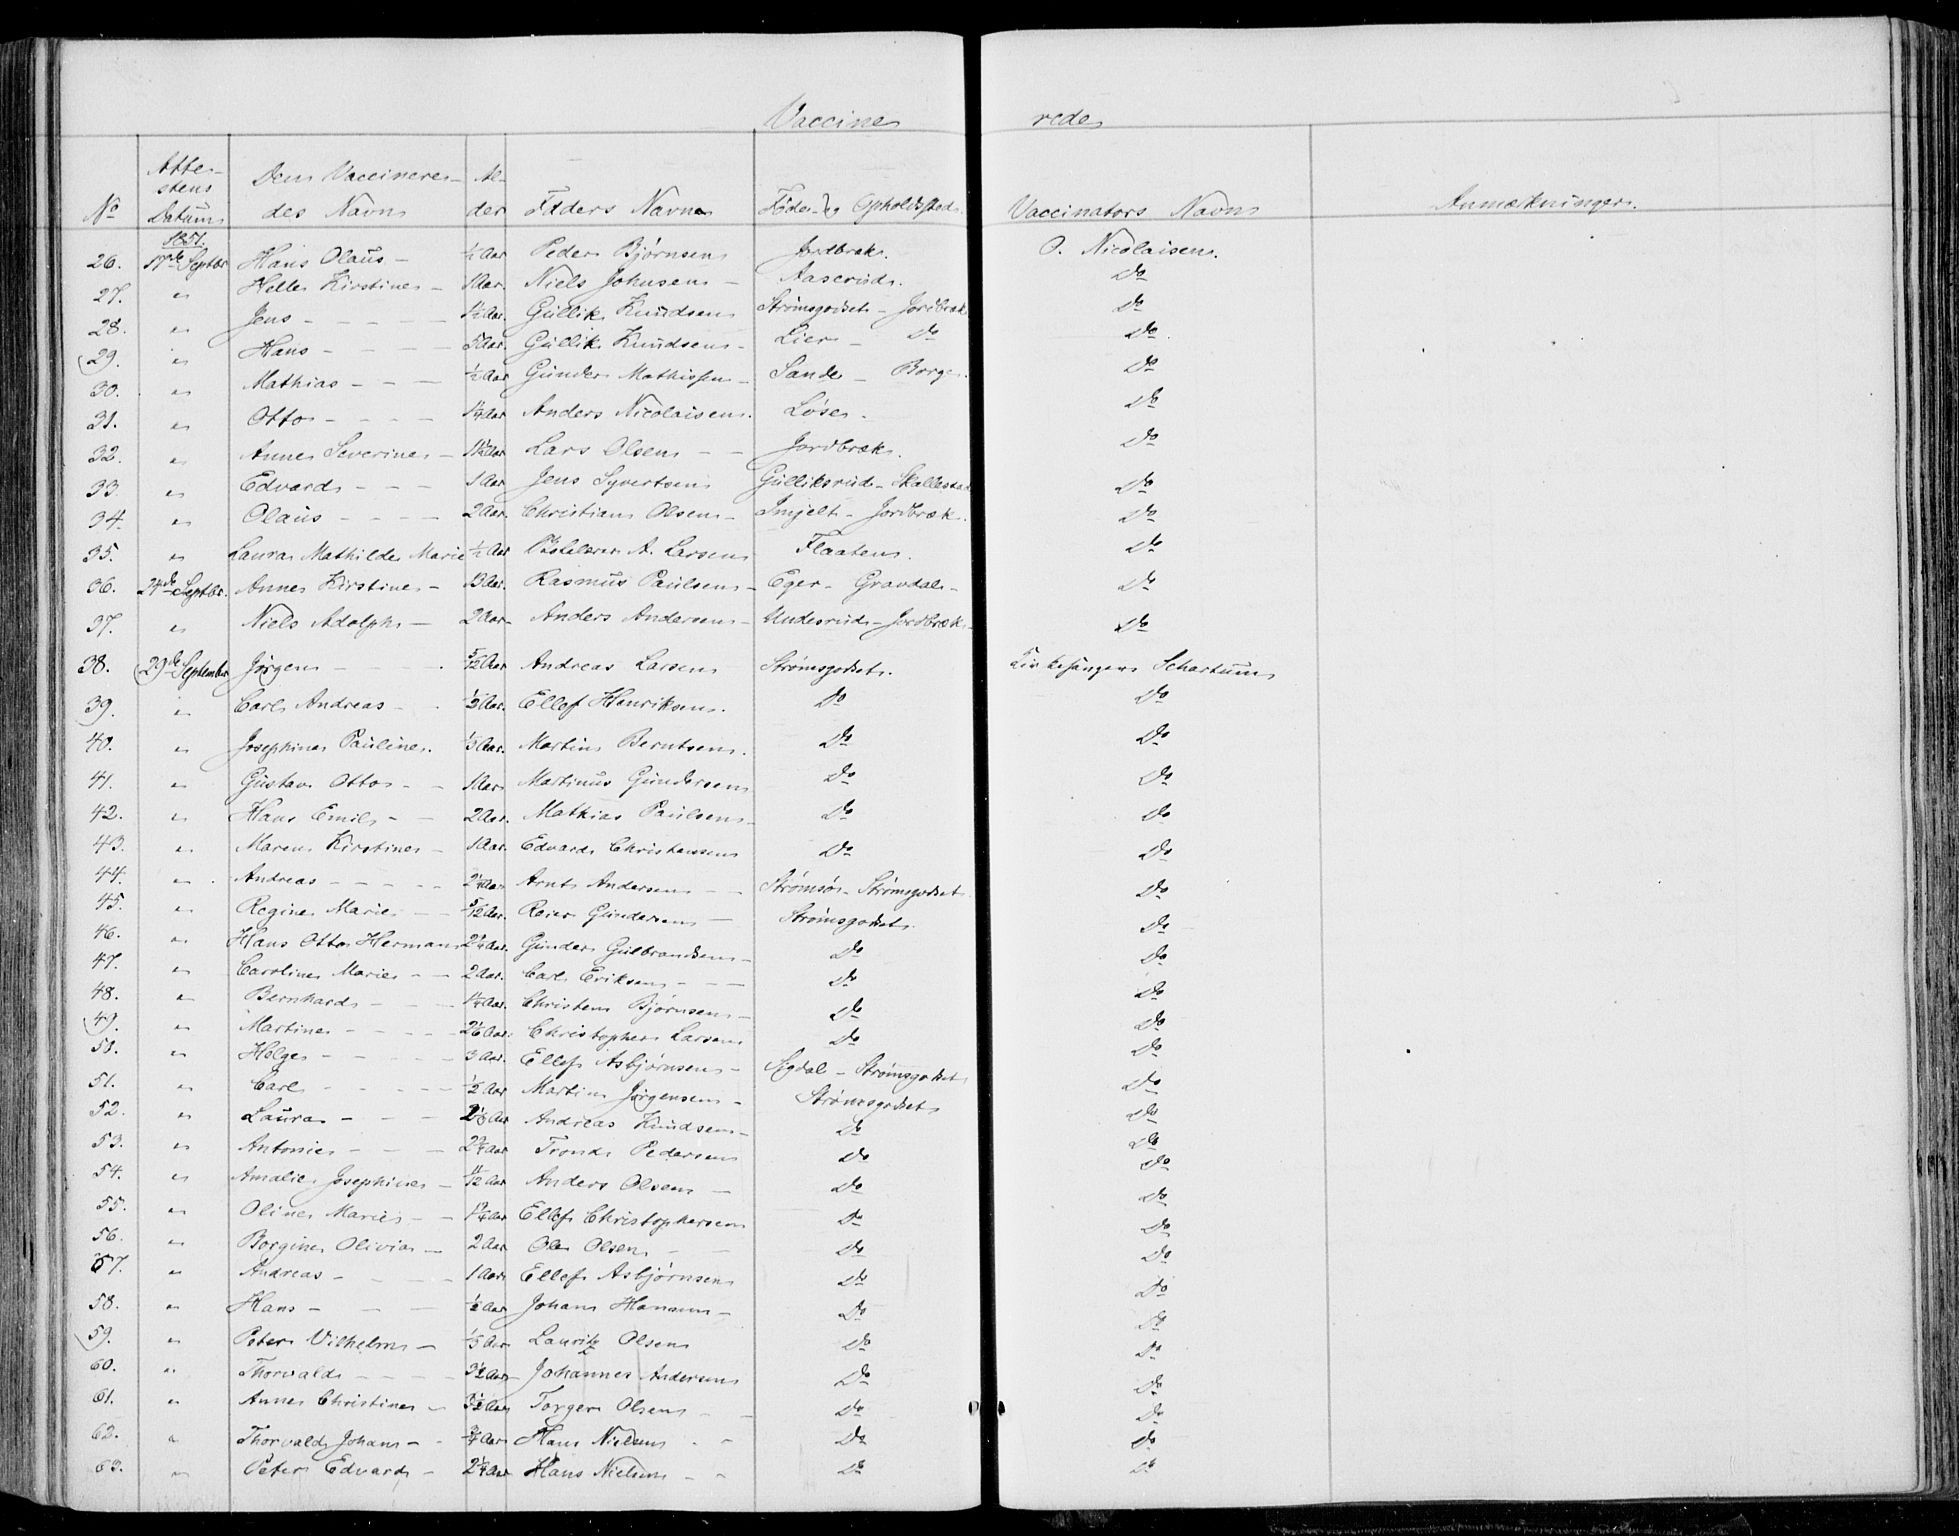 Vaccine rede
No Atte-stens Datum Den Vaccinere-des Navn Al-der Faders Navn Føde- og Opholdssted Vaccinators Navn Anmærkninger.
1851.
26. 17de Septbr Hans Olaus - ½ Aar Peder Bjørnsen Jordbræk. O. Nicolaisen.
27. " Helle Kirstine - 1 Aar. Niels Johnsen - Aaserud. Do
28. " Jens - - - - 1½ Aar. Gullik Knudsen Strømsgodset - Jordbræk Do
29. " Hans - - - - 5 Aar. Gullik Knudsen - Lier - Do Do
30. " Mathias - - - ½ Aar Gunder Mathissen - Sande - Borge. Do
31. " Otto - - - - 1¼ Aar Anders Nicolaisen. Løse. Do
32. " Anne Severine - 1½ Aar Lars Olsen - - Jordbræk. Do
33. " Edvard - - - 1 Aar Jens Syvertsen Gulliksrud - Skallestad Do
34. " Olaus - - - - 2 Aar. Christian Olsen - Imjelt - Jordbræk. Do
35. " Laura Mathilde Marie ½ Aar A. Larsen Flaaten. Do
36. 24de Septbr. Anne Kirstine - 13 Aar. Rasmus Paulsen - Eger - Gravdal - Do
37. " Niels Adolph - 2 Aar - Anders Andersen - Underrud - Jordbræk - Do
38. 29de September Jørgen - - - 5/12 Aar Andreas Larsen Strømsgodset. Kirkesanger Schartum
39. " Carl Andreas - - ½ Aar. Ellef Henriksen. Do Do
40. " Josephine Pauline. ⅓ Aar. Martin Berntsen. Do Do
41. " Gustav Otto - - 1 Aar Martinus Gundersen Do Do
42. " Hans Emil - - 2 Aar. Mathias Paulsen - Do Do
43. " Maren Kirstine - 1 Aar. Edvard Christensen Do Do
44. " Andreas - - - - 2¼ Aar. Arnt Andersen - - Strømsø - Strømsgodset. Do
45. " Regine Marie - - 5/12 Aar. Reier Gundersen - Strømsgodset. Do
46. " Hans Otto Herman 2¼ Aar. Gunder Gulbrandsen - Do Do
47. " Caroline Marie - - 2 Aar. Carl Eriksen - - - Do Do
48. " Bernhard - - - 1¼ Aar. Christen Bjørnsen - Do Do
49. " Martine - - - - 2⅙ Aar. Christopher Larsen Do Do
50. " Helge - - - - 3 Aar. Ellef Asbjørnsen - Sigdal - Strømsgodset Do
51. " Carl - - - - ½ Aar Martin Jørgensen - Strømsgodset Do
52. " Laura - - - 2⅓ Aar Andreas Knudsen - Do Do
53. " Antonie - - - 2¾ Aar Trond Pedersen Do Do
54. " Amalie Josephine - 11/12 Aar Anders Olsen - Do Do
55. " Oline Marie - - 1¾ Aar Ellef Christophersen Do Do
56. " Borgine Olivia - 2 Aar Ole Olsen - - Do Do
57. " Andreas - - - - 1 Aar Ellef Asbjørnsen Do Do
58. " Hans - - - - ½ Aar Johan Hansen - Do Do
59. " Peter Vilhelm - ⅓ Aar Lauritz Olsen Do Do
60. " Thorvald - - - - 3½ Aar Johannes Andersen Do Do
61. " Anne Christine - 3½ Aar Torger Olsen - - Do Do
62. " Thorvald Johan - - ¾ Aar Hans Nielsen - - Do Do
63. " Peter Edvard - 2¼ Aar Hans Nielsen - - Do Do